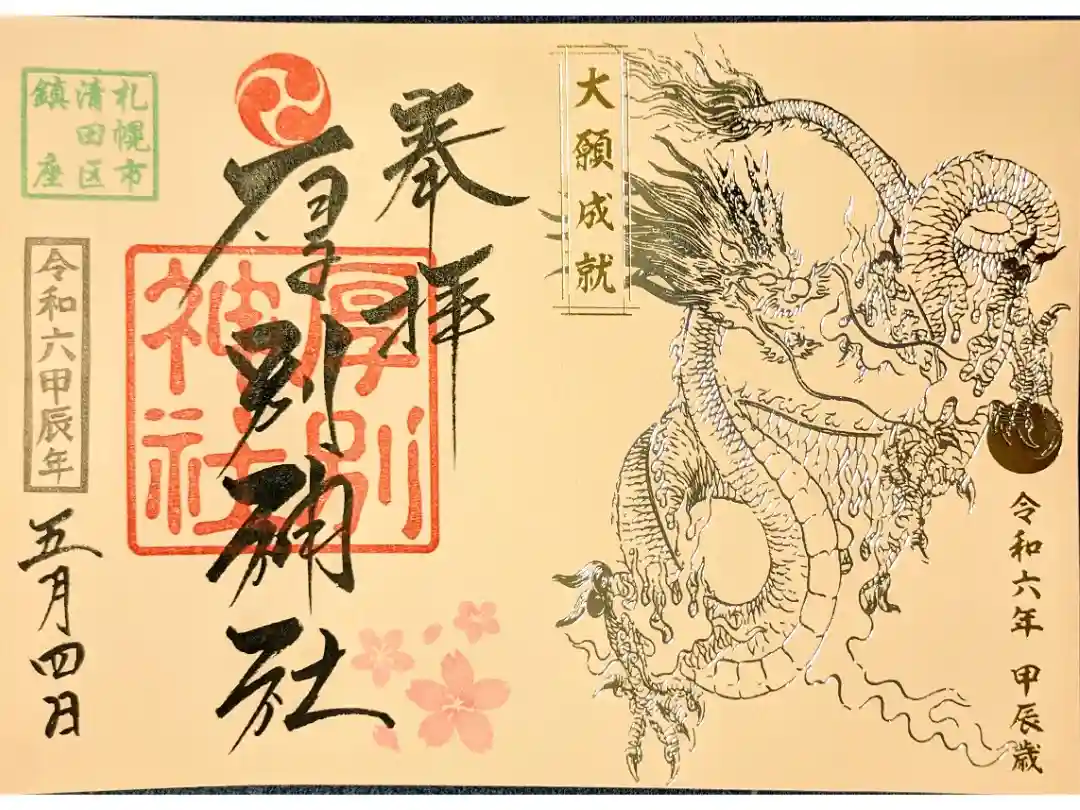 大願成就
令和六年 甲辰歳
奉拝
厚別神社
厚別
神社
札幌市
清田区
鎮座
令和六甲辰年
五月四日